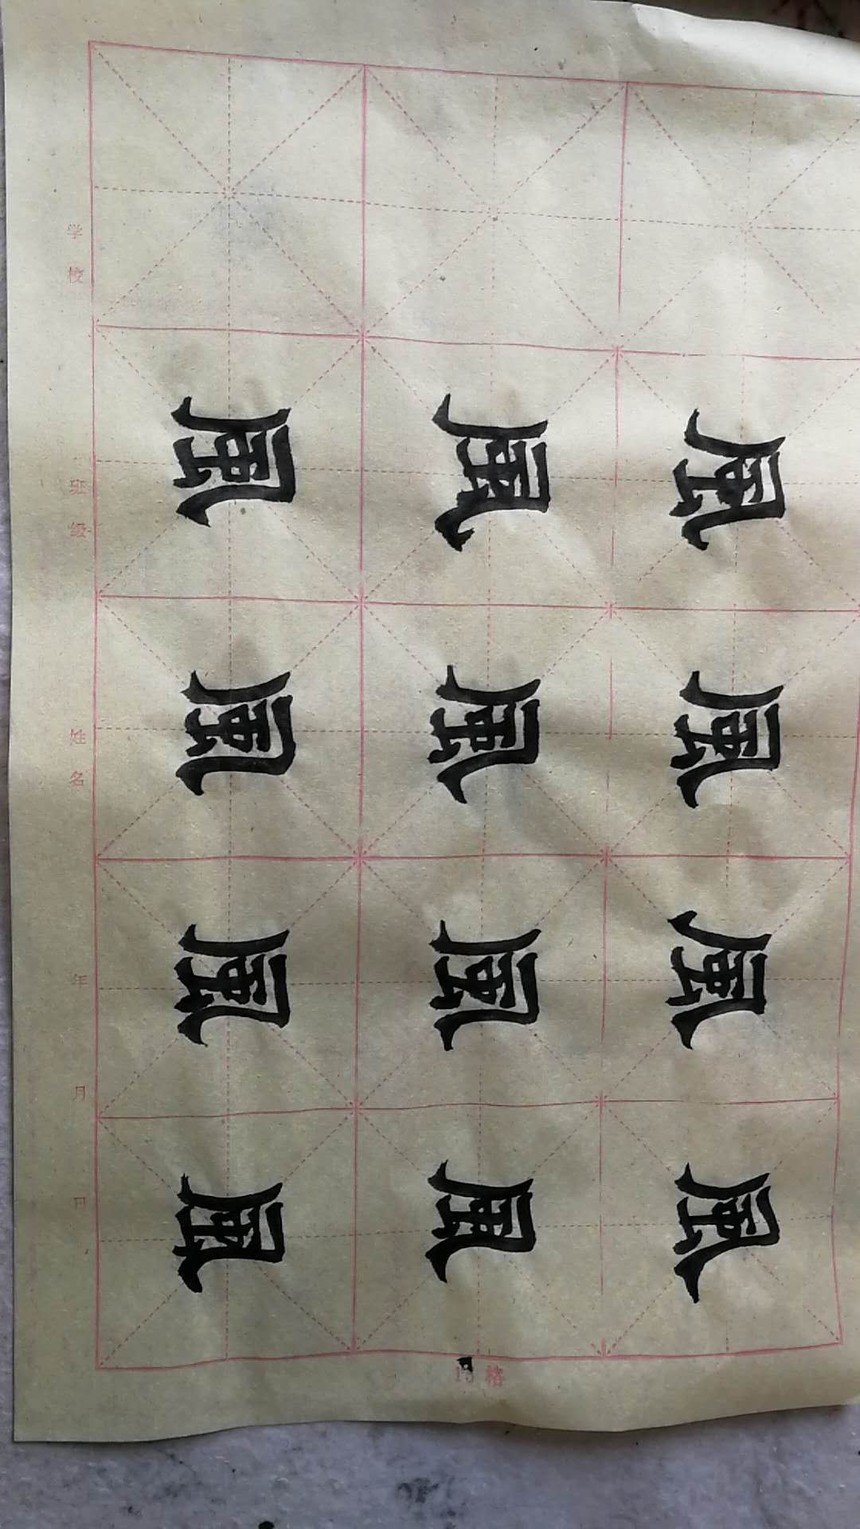 風風風風
風風風風
風風風風
15格
学校 班级 姓名 年 月 日